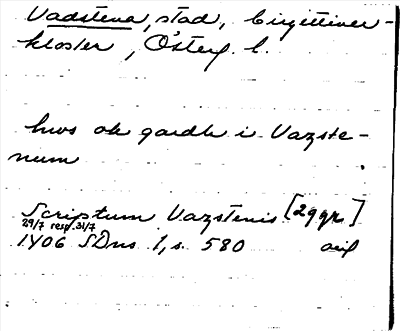 Vadstena, stad, birgittiner-
kloster, Österg. l.
hws ok gardh i Vazste-
num
Scriptum Vazstenis [2 ggr]
29/7 resp. 31/7
1406 SDns 1, s. 580 avil